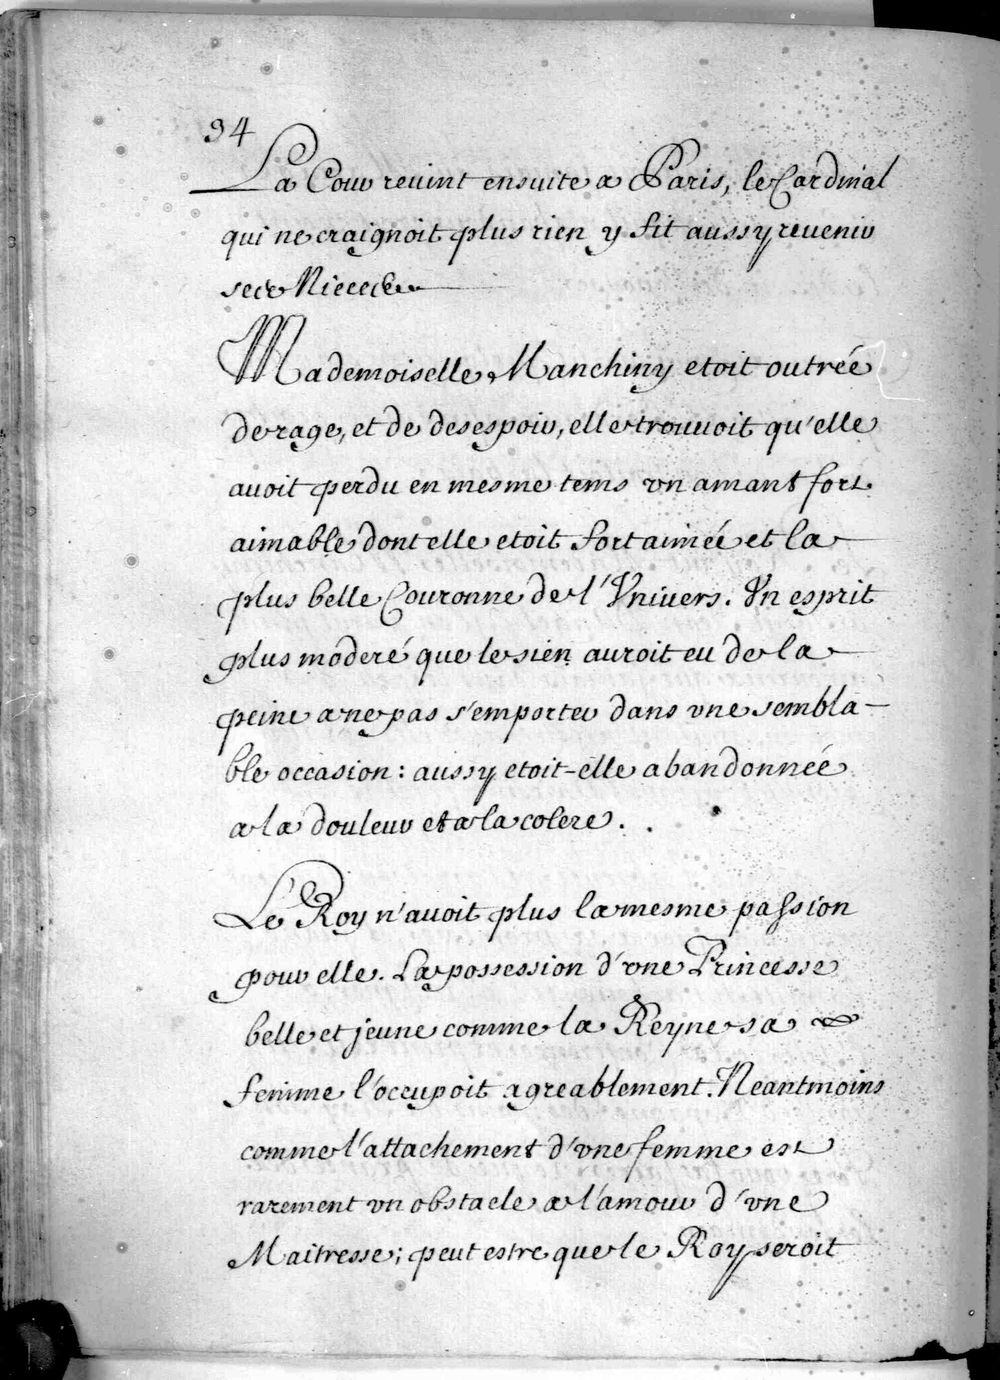 34
La Cour reuint ensuite a Paris, le Cardinal
qui ne craignoit plus rien y fit aussy reuenir
ses Nieces
Mademoiselle Manchiny etoit outrée
de rage, et de desespoir, elle trouuoit qu'elle
auoit perdu en mesme tems vn amant fort
aimable dont elle etoit fort aimée et la
plus belle Couronne de l'Vniuers. Vn esprit
plus moderé que le sien auroit eu de la
peine a ne pas s'emporter dans vne sembla-
ble occasion : aussy etoit-elle abandonnée
a la douleur et a la colere.
Le Roy n'auoit plus la mesme passion
pour elle. La possession d'vne Princesse
belle et jeune comme la Reyne sa
femme l'occupoit agreablement. Neantmoins
comme l'attachement d'vne femme est
rarement vn obstacle a l'amour d'vne
Maitresse; peut estre que le Roy seroit